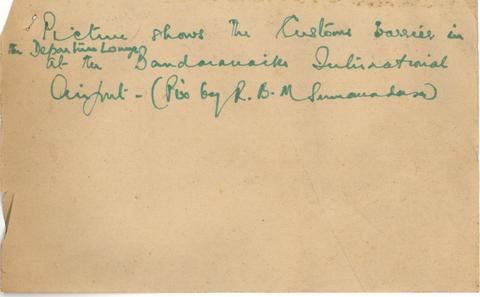 Picture shows the Customs barrier in
the Departure Lounge
at the Bandaranaike International
Airport - (Pix by R. B. M Sumanadasa)